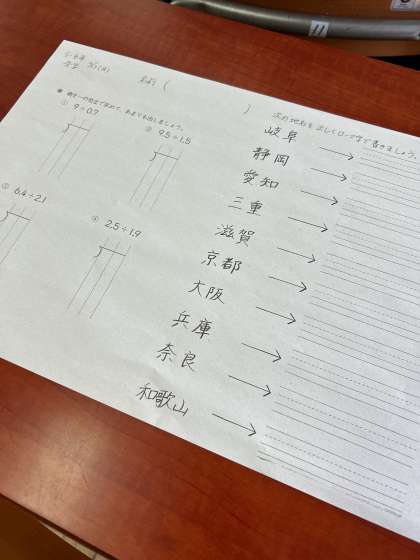 名前（　　　　　）
商を一の位まで求めて、あまりも出しましょう。
① 9÷0.7
② 9.5÷1.5
③ 6.4÷2.1
④ 2.5÷1.9
次の地名を正しくローマ字で書きましょう。
岐阜 →
静岡 →
愛知 →
三重 →
滋賀 →
京都 →
大阪 →
兵庫 →
奈良 →
和歌山 →